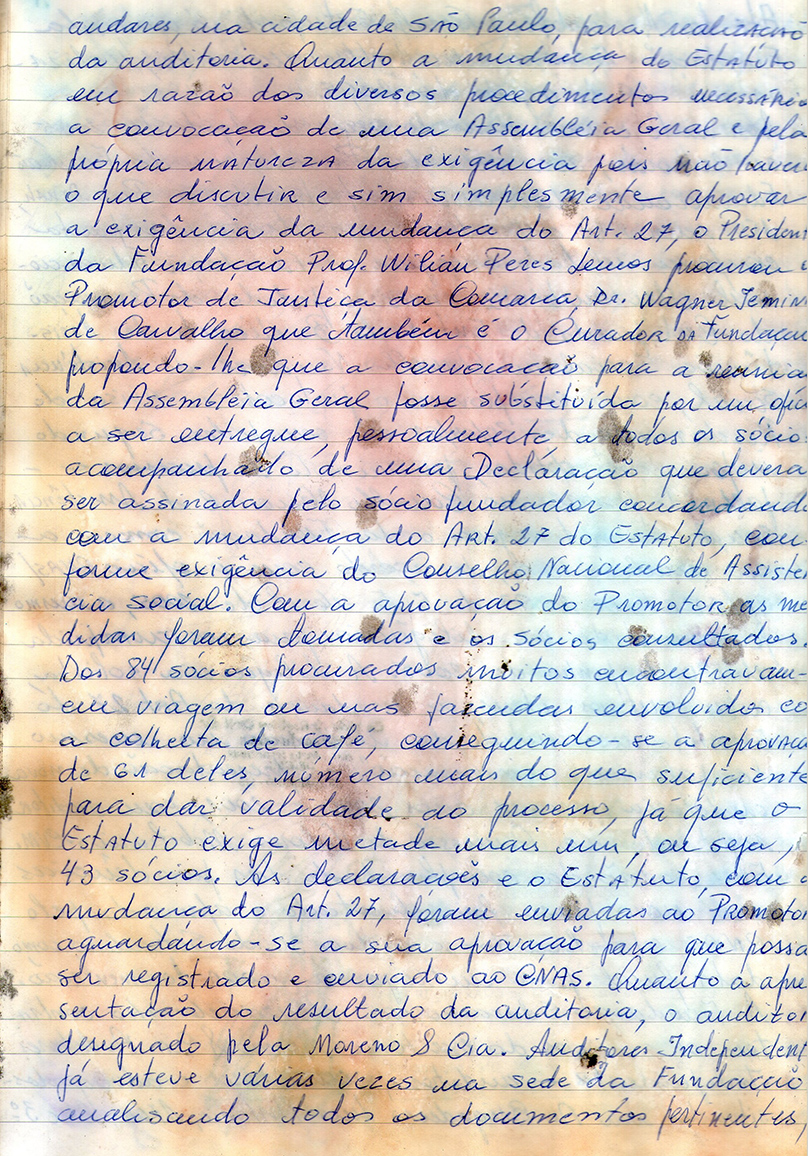 andares, na cidade de São Paulo, para realização
da auditoria. Quanto a mudança do Estatuto
em razão dos diversos procedimentos necessários
a convocação de uma Assembléia Geral e pela
própria natureza da exigência pois não haver
o que discutir e sim simplesmente aprovar
a exigência da mudança do Art. 27, o President
da Fundação Prof. Wilian Peres Lemos procurou o
Promotor de Justiça da Comarca, Dr. Wagner
de Carvalho que também é o Curador da Fundação
propondo-lhe que a convocação para a reunia
da Assembléia Geral fosse substituída por um ofíci
a ser entregue, pessoalmente, a todos os sócio
acompanhado de uma Declaração que devera
ser assinada pelo sócio fundador concordand
com a mudança do Art. 27 do Estatuto, con
forme exigência do Conselho Nacional de Assistên
cia social. Com a aprovação do Promotor as me
didas foram tomadas e os sócios consultados.
Dos 84 sócios procurados muitos encontravam-
em viagem ou nas fazendas envolvidos co
a colheita de café, conseguindo-se a aprovaçã
de 61 deles, número mais do que suficiente
para dar validade ao processo, já que o
Estatuto exige metade mais um, ou seja,
43 sócios. As declarações e o Estatuto, com a
mudança do Art. 27, foram enviadas ao Promotor
aguardando-se a sua aprovação para que possa
ser registrado e enviado ao CNAS. Quanto a apre
sentação do resultado da auditoria, o auditor
designado pela Moreno & Cia. Auditores Independent
já esteve várias vezes na sede da Fundação
analisando todos os documentos pertinentes,